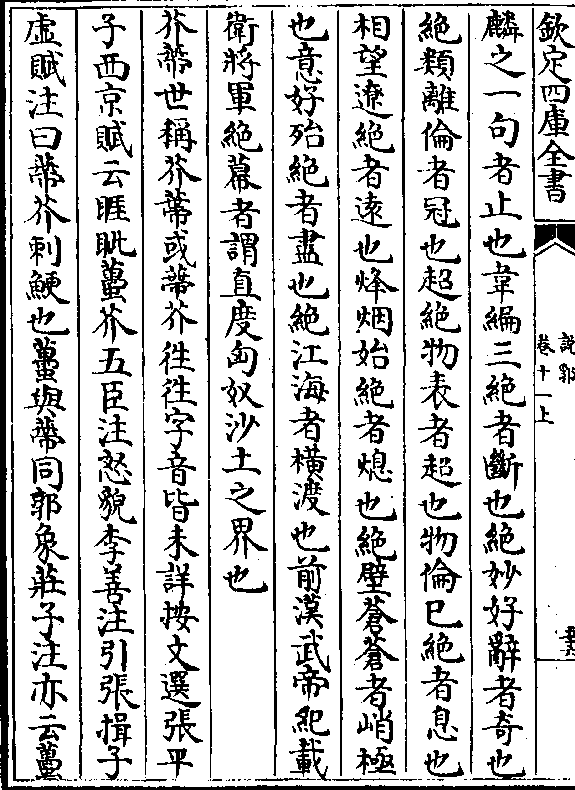 欽定四庫全書
說郛
卷十一上
麟之一句者止也韋編三絶者斷也絶妙好辭者奇也
絶類離倫者冠也超絶物表者超也物倫已絶者息也
相望遼絶者遠也烽烟始絶者熄也絶壁蒼蒼者峭極
也意好殆絶者盡也絶江海者橫渡也前漢武帝紀載
衛將軍絶幕者謂直度匈奴沙土之界也
芥蔕世稱芥蔕或蔕芥徃徃字音皆未詳按文選張平
子西京賦云睚眦蠆芥五臣注怒貌李善注引張揖子
虛賦注曰蔕芥刺鯁也蠆與蔕同郭象莊子注亦云蠆